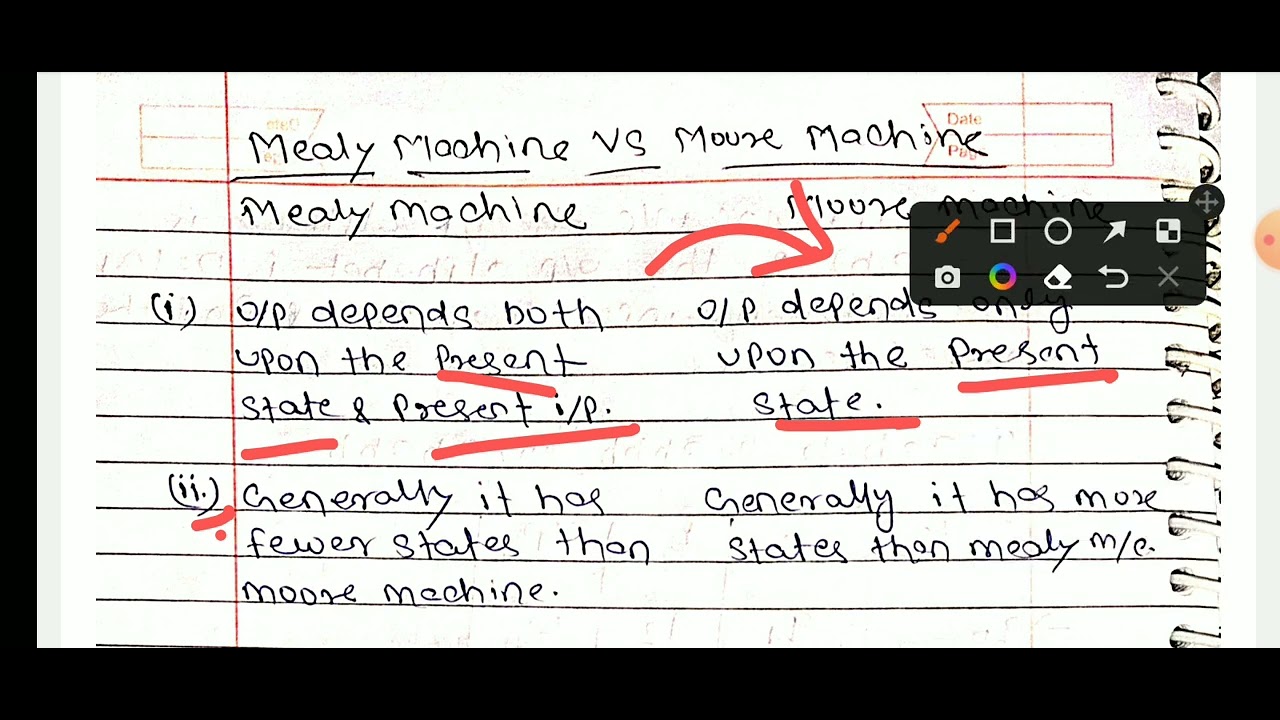 Date
Page
Mealy Machine VS Moore Machine
Mealy machine Moore machine
(i.) O/P depends both O/P depends only
upon the Present upon the Present
state & Present i/p. state.
(ii.) Generally it has Generally it has more
fewer states than states than mealy m/c.
moore machine.